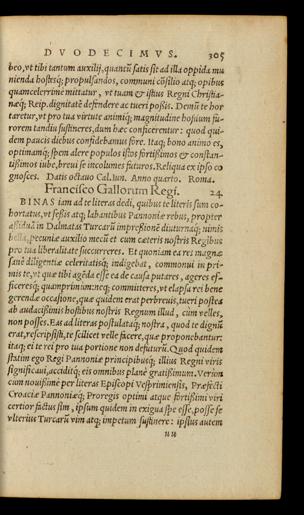 DVODECIMVS. 305
beo, vt tibi tantum auxilij, quantũ satis sit ad illa oppida mu
nienda hostesq; propulsandos, communi cõsilio atq; opibus
quamcelerrime mittatur, vt tuam & istius Regni Christia-
næq; Reip. dignitatẽ defendere ac tueri possis. Demũ te hor
taretur, vt pro tua virtute animiq; magnitudine hostium fu-
rorem tandiu sustineres, dum hæc conficerentur: quod qui-
dem paucis diebus confidebamus fore. Itaq; bono animo es,
optimamq; spem alere populos istos fortissimos & constan-
tissimos iube, breui se incolumes futuros. Reliqua ex ipso co
gnosces. Datis octauo Cal. Iun. Anno quarto. Roma.
Francisco Gallorum Regi. 24.
BINAS iam ad te literas dedi, quibus te literis sum co-
hortatus, vt fessis atq; labantibus Pannoniæ rebus, propter
assiduã in Dalmatas Turcarũ impressionẽ diuturnaq; nimis
bella, pecuniæ auxilio mecũ et cum cæteris nostris Regibus
pro tua liberalitate succurreres. Et quoniam ea res magnæ
sanè diligentiæ celeritatisq; indigebat, communui in pri-
mis te, vt quæ tibi agẽda esse ea de causa putares, ageres ef-
ficeresq; quamprimùm: neq; committeres, vt elapsa rei bene
gerendæ occasione, quæ quidem erat perbreuis, tueri postea
ab audacissimis hostibus nostris Regnum illud, cum velles,
non posses. Eas ad literas postulataq; nostra, quod te dignũ
erat, rescripsisti, te scilicet velle facere, quæ proponebantur:
itaq; ei te rei pro tua portione non defuturũ. Quod quidem
statim ego Regi Pannoniæ principibusq; illius Regni viris
significaui, acciditq; eis omnibus planè gratissimum. Verùm
cum nouissimè per literas Episcopi Vesprimiensis, Præfecti
Croaciæ Pannoniæq; Proregis optimi atque fortissimi viri
certior factus sim, ipsum quidem in exigua spe esse, posse se
vlterius Turcarũ vim atq; impetum sustinere: ipsius autem
uu